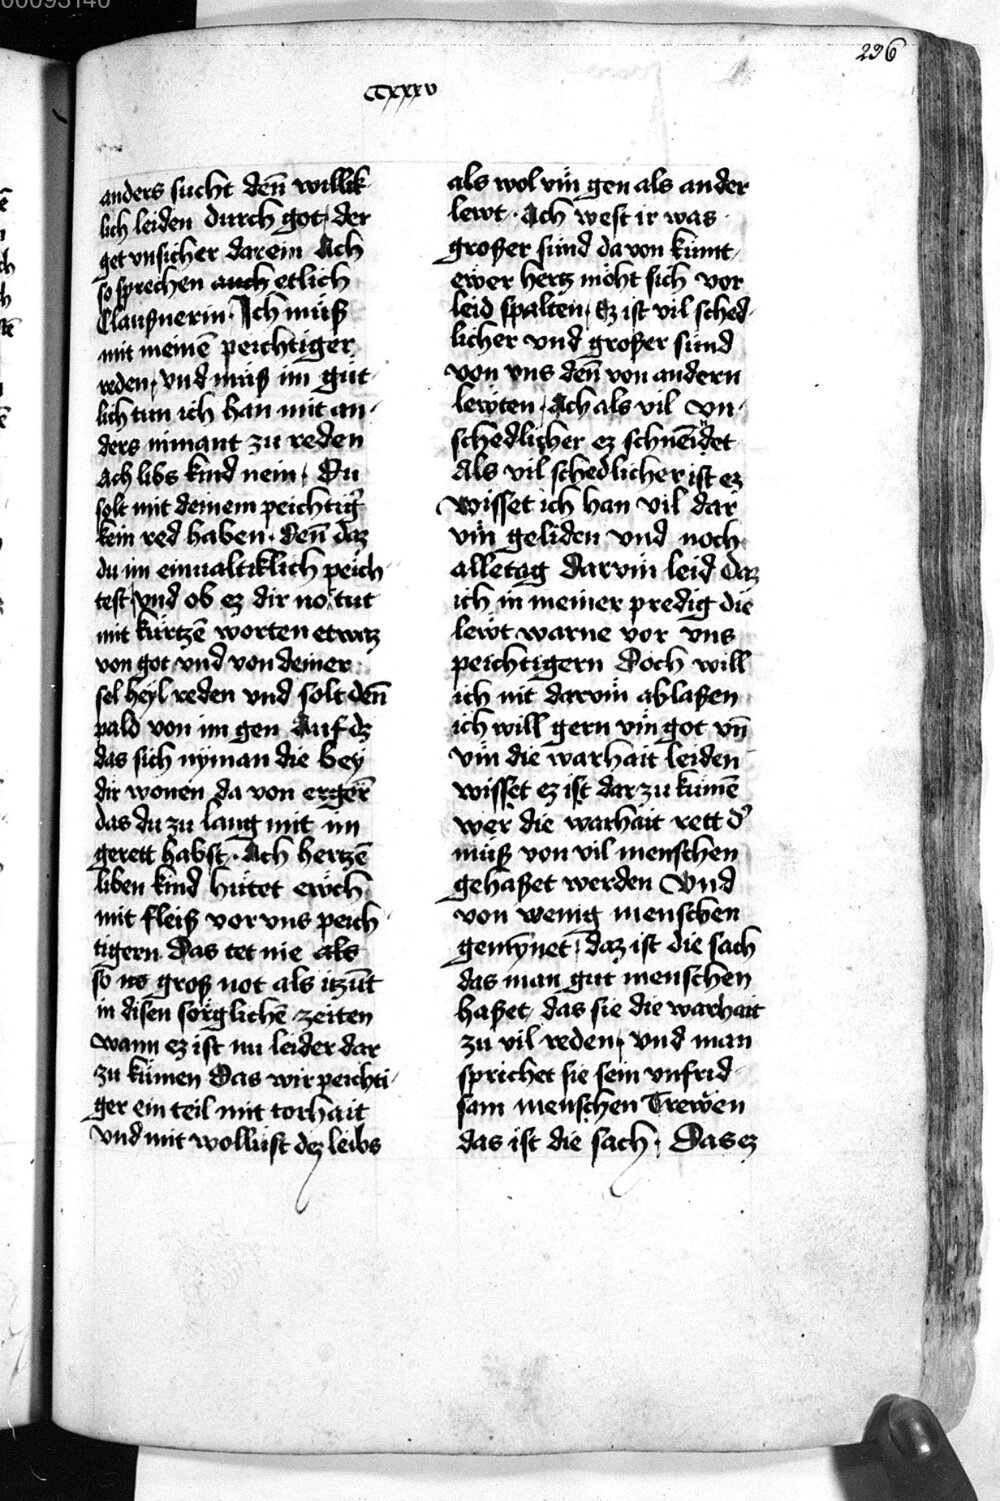 00093140
236
CCxxxv
anders sucht deñ willik
lich leiden durch got, der
get vnsicher darein Ach
so sprechen auch etlich
Clausznerin. Ich müsz
mit meinē peichtiger
reden, vnd müsz im güt
lich tun ich han mit an
ders nimant zu reden
Ach libs kind nein, Du
solt mit deinem peichtig̛
kein red haben. Deñ daz
du im einualtiklich peich
test, vnd ob ez dir not tut
mit kürtzē worten etwaz
von got vnd von deiner
sel heyl reden vnd solt deñ
pald von im gen Auf dz
das sich nyman die bey
dir wonen da von ergerē
das du zu lang mit im
gerett habst. Ach hertzē
liben kind hütet ewch
mit fleisz vor vns peich
tigern Das tet nie als
so no grosz not als itzūt
in disen sörglichē zeiten
wann ez ist nu leider dar
zu kümen Das wir peichti
ger ein teil mit torhait
vnd mit wollüst dez leibs
als wol vm̄ gen als ander
lewt. Ach west ir was
groszer sünd da von kümt
ewer hertz möht sich vor
leid spalten, Ez ist vil sched
licher vnd groszer sünd
von vns deñ von andern
lewten, Ach als vil vn
schedlicher ez schneidet
Als vil schedlicher ist ez
Wisset ich han vil dar
vm̄ geliden vnd noch
alletag darvm̄ leid daz
ich in meiner predig die
lewt warne vor vns
peichtigern Doch will
ich nit darvm̄ ablaszen
ich will gern vm̄ got vñ
vm̄ die warhait leiden
wisset ez ist dar zu kümē
wer die warhait rett d̛
müsz von vil menschen
gehaszet werden Vnd
von wenig menschen
gemȳnet, daz ist die sach
das man gut menschen
haszet, das sie die warhait
zu vil reden, vnd man
sprichet sie sein vnfrid
sam menschen Trewen
das ist die sach. Das ez